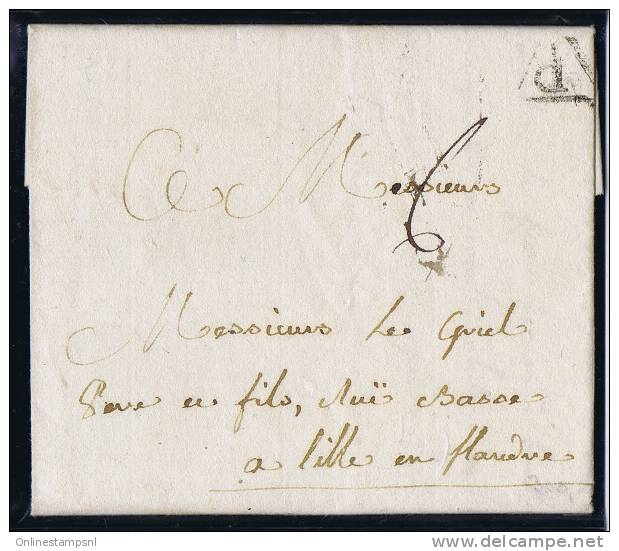 d
A Messieurs
6
Messieurs Le Griel
Pere et fils, Ruë Basse
a lille en flandre
Onlinestampsnl
delcampe.net